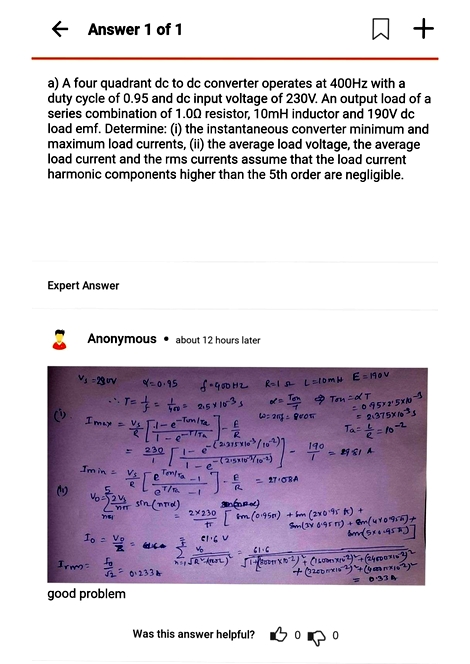 Answer 1 of 1
a) A four quadrant dc to dc converter operates at 400Hz with a
duty cycle of 0.95 and dc input voltage of 230V. An output load of a
series combination of 1.0Ω resistor, 10mH inductor and 190V dc
load emf. Determine: (i) the instantaneous converter minimum and
maximum load currents, (ii) the average load voltage, the average
load current and the rms currents assume that the load current
harmonic components higher than the 5th order are negligible.
Expert Answer
Anonymous • about 12 hours later
Vs = 230V α = 0.95 f = 400HZ R = 1Ω L = 10mH E = 190V
∴ T = 1/f = 1/400 = 2.5×10⁻³s α = Ton/T ⇒ Ton = αT
= 0.95×2.5×10⁻³
ω = 2πf = 800π = 2.375×10⁻³s
(i) Imax = Vs/R [1-e^-Ton/Ta / 1-e^-T/Ta] - E/R Ta = L/R = 10⁻²
= 230/1 [1-e^-(2.375×10⁻³/10⁻²) / 1-e^-(2.5×10⁻³/10⁻²)] - 190/1 = 29.81 A
Imin = Vs/R [e^Ton/Ta -1 / e^T/Ta -1] - E/R = 27.08A
(ii) Vo = 5∑n=1 2Vs/nπ sin(nπα)
= 2×230/π [sin(0.95π) + sin(2×0.95π) +
sin(3×0.95π) + sin(4×0.95π) +
sin(5×0.95π)]
= 61.6 V
Io = Vo/Z
= 0.33A
Irms = Io/√2 = 0.233A
good problem
Was this answer helpful? 0 0